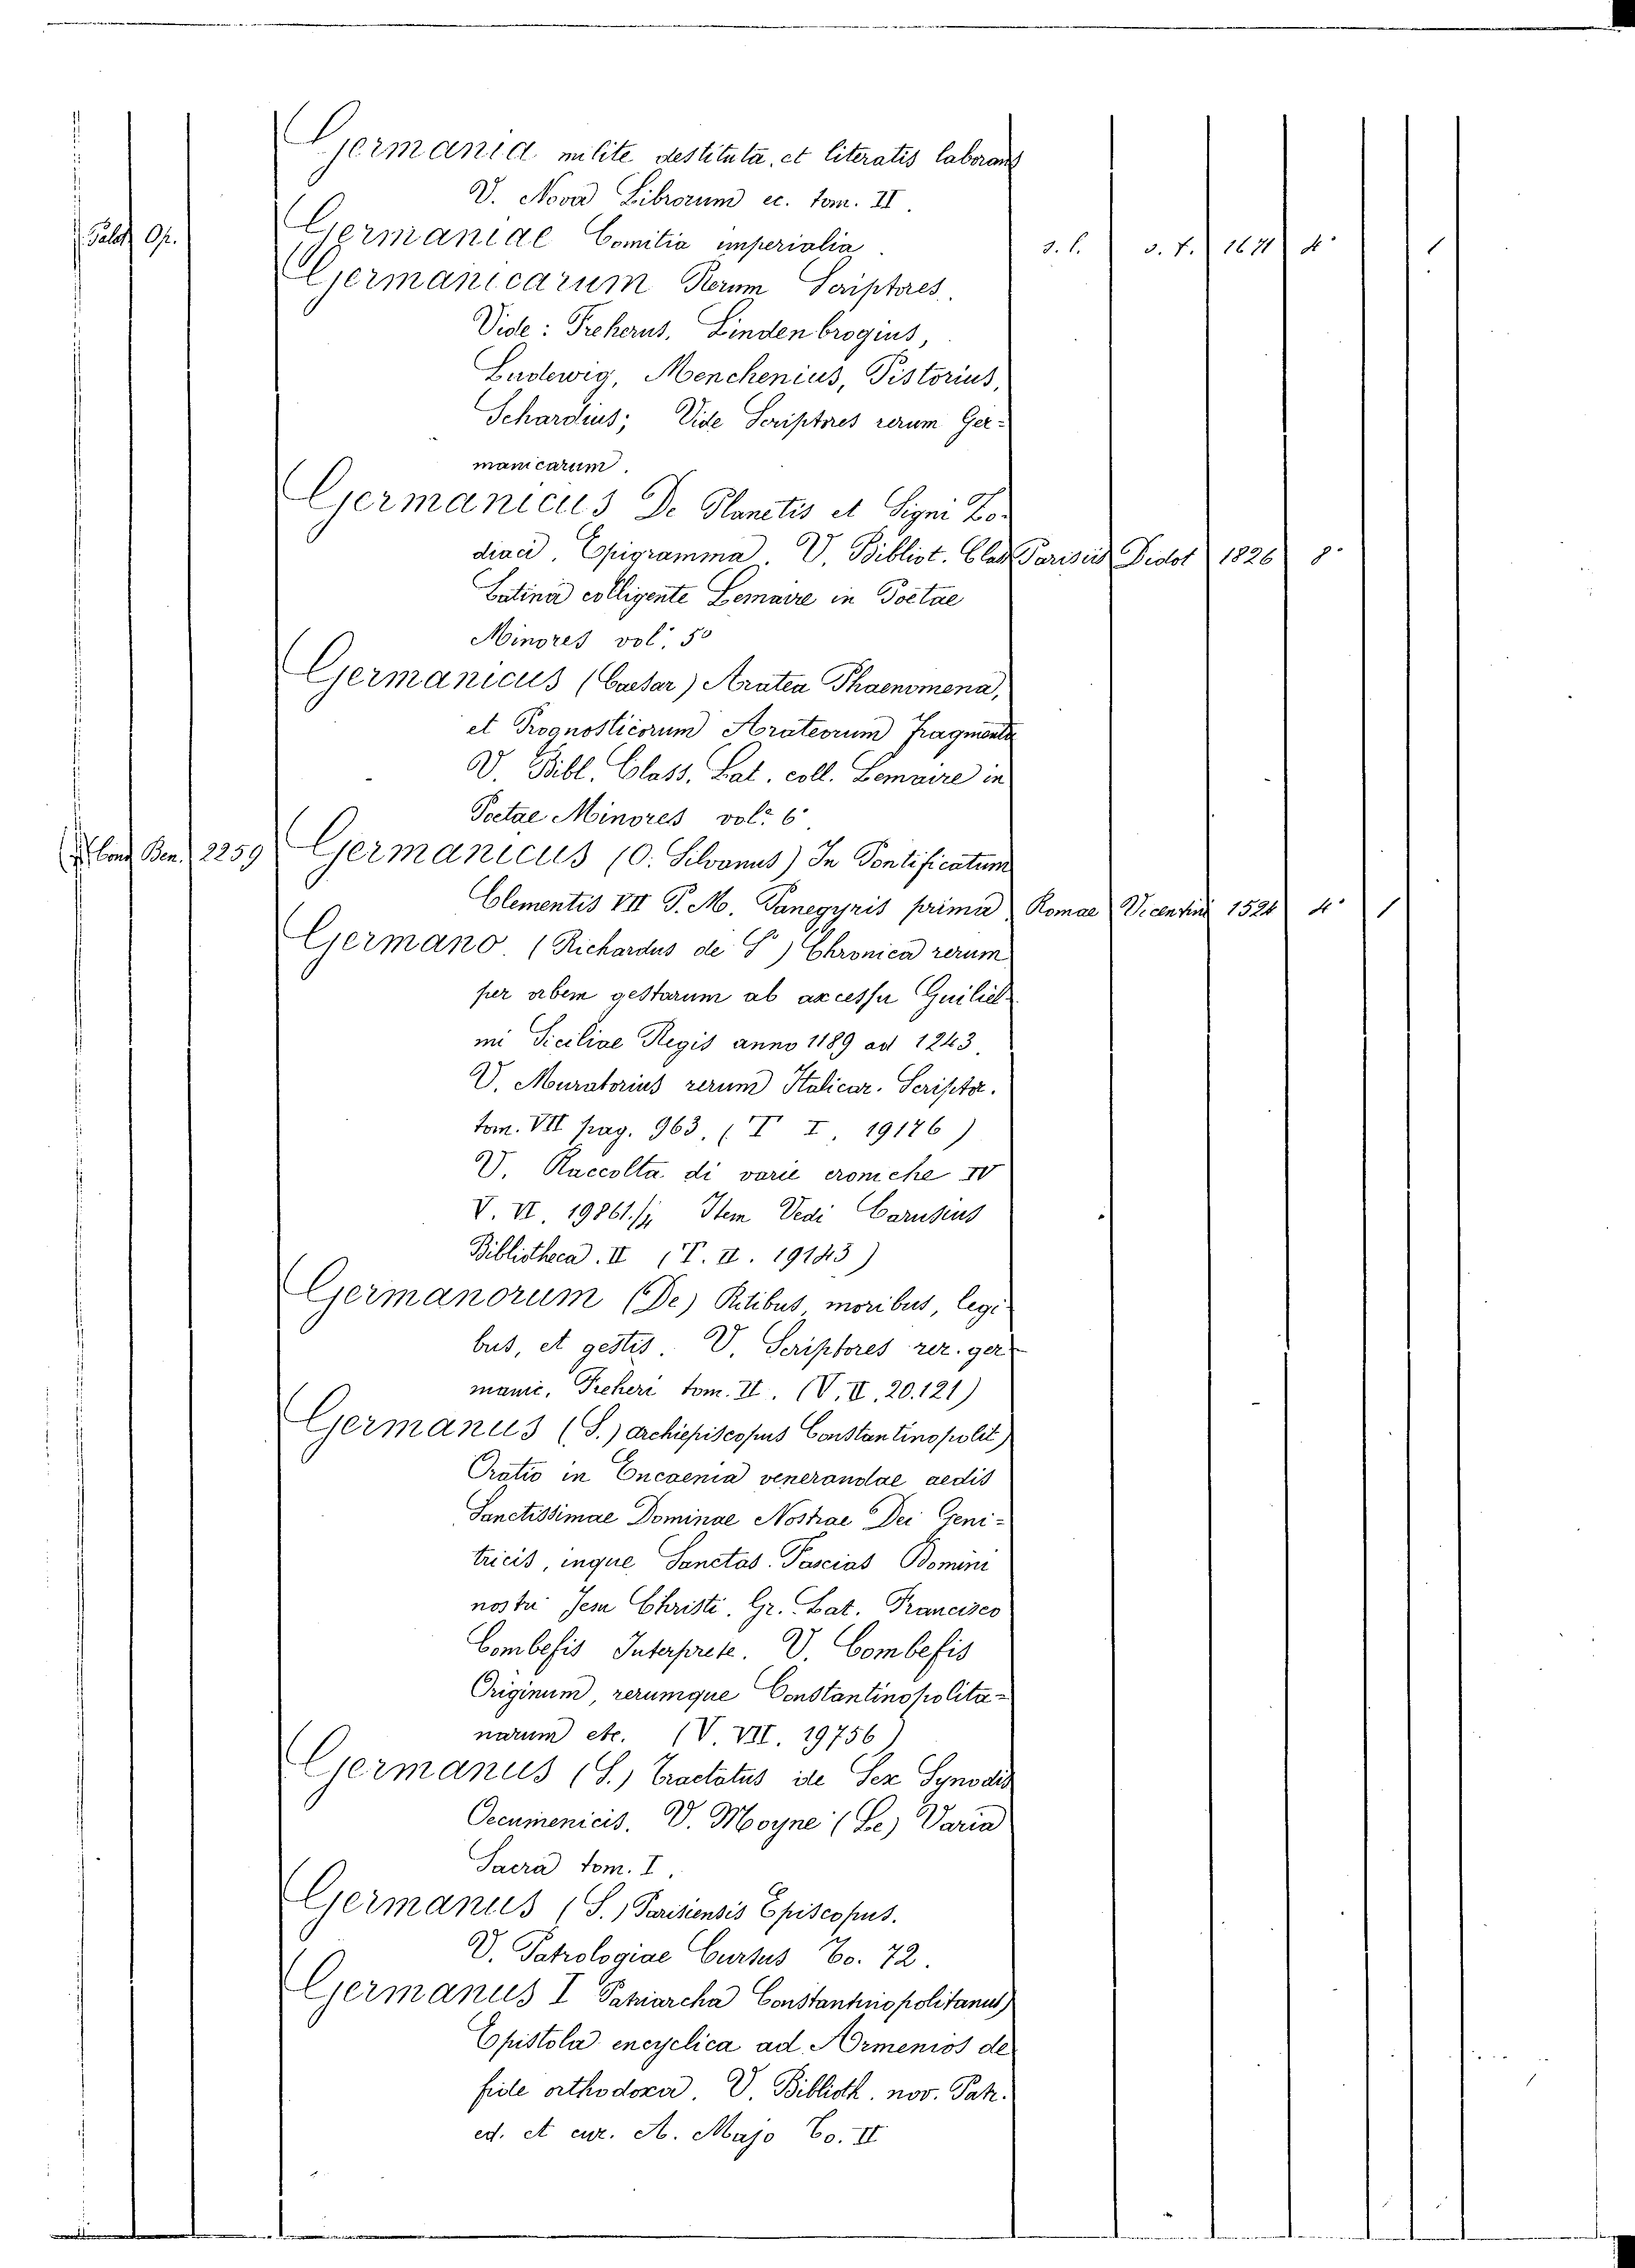 Germania milite destituta, et literatis laborans
V. Nova Librorum ec. tom. II.
Palat Op. Germaniae Comitia imperialia. s. l. s. t. 1671 4° 1
Germanicarum Rerum Scriptores.
Vide: Freherus, Lindenbrogius,
Ludewig, Menchenius, Pistorius,
Schardius; Vide Scriptores rerum Ger-
manicarum.
Germanicus De Planetis et Signi Zo-
diaci. Epigramma. V. Bibliot. Clas. Parisiis Didot 1826 8°
Latina colligente Lemaire in Poetae
Minores vol. 5°
Germanicus (Caesar) Aratea Phaenomena,
et Prognosticorum Arateorum Fragmenta
V. Bibl. Class. Lat. coll. Lemaire in
Poetae Minores vol: 6°.
Ben. 2259 Germanicus (O. Silvanus) In Pontificatum
Clementis VII P. M. Panegyris prima Romae Vicentini 1524 4° 1
Germano. (Richardus de S.) Chronica rerum
per orbem gestarum ab accessu Guiliel-
mi Siciliae Regis anno 1189 ad 1243.
V. Muratorius rerum Italicar. Scriptor.
tom. VII pag. 963. (T I. 19176)
V. Raccolta di varie croniche IV
V. VI. 19861. Item Vedi Carusius
Bibliotheca. II (T. II. 19143)
Germanorum (De) Ritibus, moribus, legi-
bus, et gestis. V. Scriptores rer. ger-
manic. Freheri tom. II. (V. II. 20.121)
Germanus (S.) archiepiscopus Constantinopolit)
Oratio in Encaenia venerandae aedis
Sanctissimae Dominae Nostrae Dei Geni-
tricis, inque Sanctas Fascias Domini
nostri Jesu Christi. Gr. Lat. Francisco
Combefis Interprete. V. Combefis
Originum, rerumque Constantinopolita-
narum etc. (V. VII. 19756)
Germanus (S.) Tractatus de Sex Synodis
Oecumenicis. V. Moyne (Le) Varia
Sacra tom. I.
Germanus (S.) Parisiensis Episcopus.
V. Patrologiae Cursus To. 72.
Germanus I Patriarcha Constantinopolitanus)
Epistola encyclica ad Armenios de
fide orthodoxa. V. Biblioth. nov. Patr.
ed. et cur. A. Majo To. II